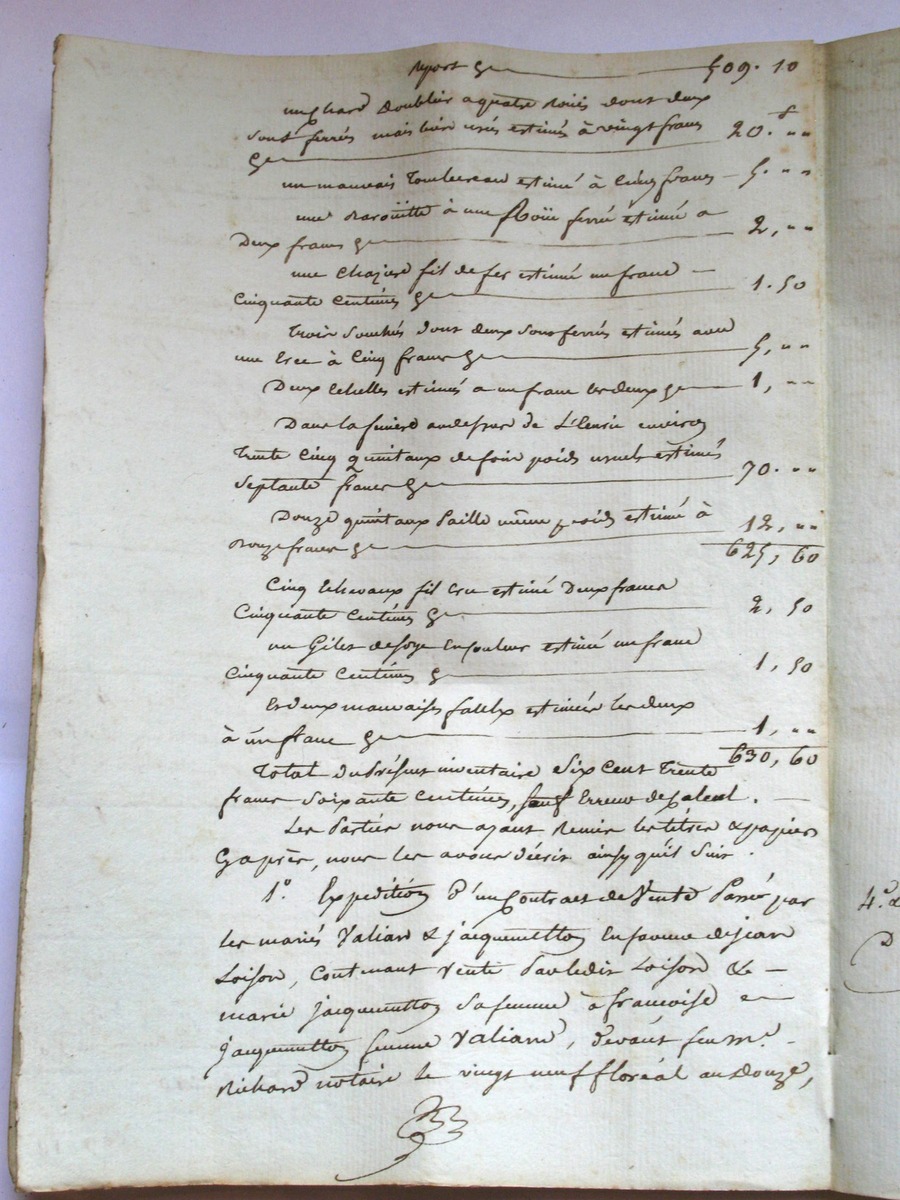 Report cy 509. 10
un Chard Doublier a quatre Roües dont deux
sont ferrés mais bien usés estimés à vingt francs
cy 20.f „„
un mauvais Tombereau estimé à Cinq francs – 5. „„
une Baroüette à une Roüe ferré estimé a
Deux francs cy 2, „„
une fil de fer estimé un franc –
Cinquante Centimes cy 1. 50
trois dont deux sont ferrés estimés avec
une à Cinq francs cy 5, „„
Deux Echelles estimés a un franc les deux cy 1, „„
Dans la au dessus de L'Ecurie environ
trente Cinq quintaux de foin poids usuels estimés
Septante francs cy 70. „„
Douze quintaux Paille même poids estimé à
Douze francs cy 12, „„
625, 60
Cinq Echevaux fil cru estimé Deux francs
Cinquante Centimes cy 2, 50
un Gilet de soye en couleur estimé un franc
Cinquante Centimes cy 1, 50
Et deux mauvaises estimées les deux
à un franc cy 1, „„
630, 60
Total du Présent inventaire Six Cent Trente
francs Soixante Centimes, sauf Erreur de Calcul. —
Les Parties nous ayant Remis les titres & papiers
Cy après, nous les avons décrit ainsy qu'il Suit.
1.° Expedition D'un Contract de Vente Passé par
les mariés Valian & jacquemetton En faveur de jean
Loison, Contenant Vente Par ledit Loison & —
marie jacquemetton Sa femme à francoise —
jacquemetton femme Valiand, Devant feu M.e –
Richard notaire le vingt neuf floréal an Douze,
4.°
D